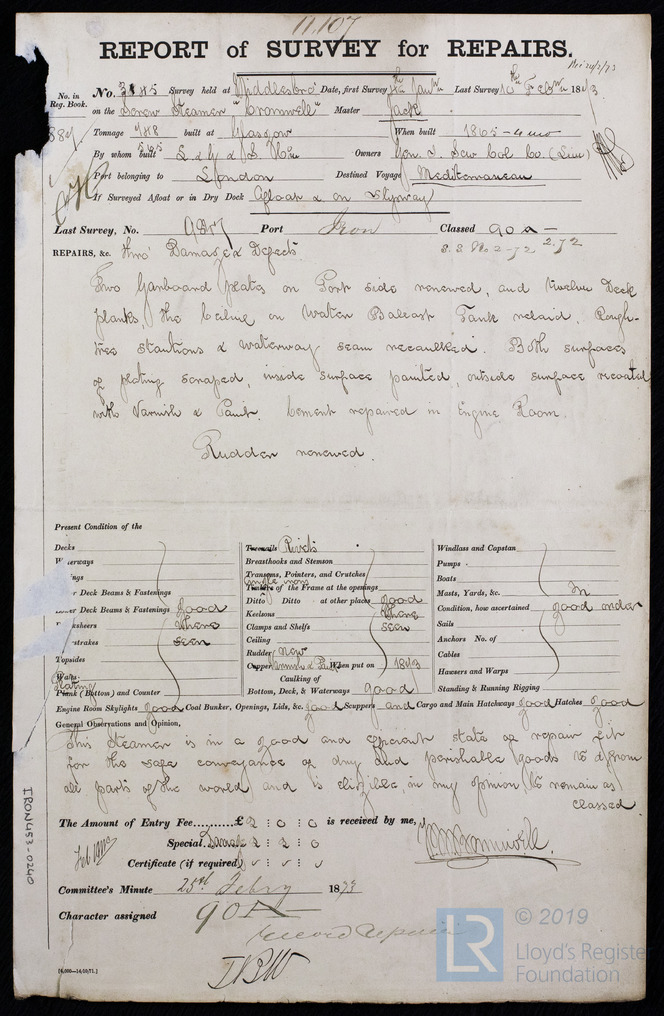 11,107
REPORT of SURVEY for REPAIRS.
No. in Reg. Book.
No. 3185 Survey held at Middlesbro' Date, first Survey Janry Last Survey Febry 1873
on the Screw Steamer "Cromwell" Master Jack
Tonnage 988 built at Glasgow When built 1865-4 mo
By whom built L & G Owners Gen. I. Scw Col Co. (Lim)
Port belonging to London Destined Voyage Mediterranean
If Surveyed Afloat or in Dry Dock Afloat & on Slipway
Last Survey, No. Port Iron Classed 90 A
S. S. No 2-72 2,72
REPAIRS, &c. thro' Damage & Defects.
Two Garboard plates on Port side renewed, and twelve Deck
planks, the Ceiling on Water Ballast Tank relaid. Rough-
tree stantions & Waterway seam recaulked. Both surfaces
of plating scraped, inside surface painted, outside surface recoated
with Varnish & Paint. Cement repaired in Engine Room.
Rudder renewed.
Present Condition of the
Decks
Waterways
ings
r Deck Beams & Fastenings
wer Deck Beams & Fastenings good
ksheers where
rstrakes seen
Topsides
Wales
Plating
Plank (Bottom) and Counter
Treenails Rivets
Breasthooks and Stemson
Transoms, Pointers, and Crutches
Angle irons
Timbers of the Frame at the openings
Ditto Ditto at other places good
Keelsons where
Clamps and Shelfs seen
Ceiling
Rudder New
Copper Varnish & Paint When put on 1873
Caulking of
Bottom, Deck, & Waterways good
Windlass and Capstan
Pumps
Boats
Masts, Yards, &c. In
Condition, how ascertained good order
Sails
Anchors No. of
Cables
Hawsers and Warps
Standing & Running Rigging
Engine Room Skylights good Coal Bunker, Openings, Lids, &c. good Scuppers and Cargo and Main Hatchways good Hatches good
General Observations and Opinion,
This Steamer is in a good and efficient state of repair fit
for the safe conveyance of dry and perishable goods to & from
all parts of the world and is eligible, in my opinion, to remain as
classed
The Amount of Entry Fee..........£ 2 : 0 : 0 is received by me,
Special Damage 2 : 2 : 0
Certificate (if required)
Committee's Minute 25th Febry 1873
Character assigned 90A
record repairs
[6,000—14/10/71.]
IRON453-0240
LR
© 2019
Lloyd's Register
Foundation